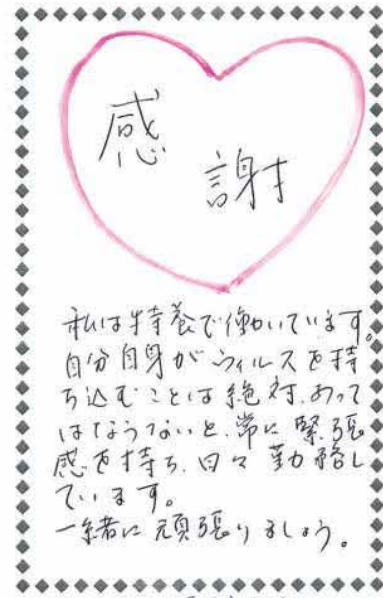 感
謝
私は特養で働いています。
自分自身がウィルスを持
ち込むことは絶対、あって
はならないと、常に緊張
感を持ち、日々勤務し
ています。
一緒に頑張りましょう。